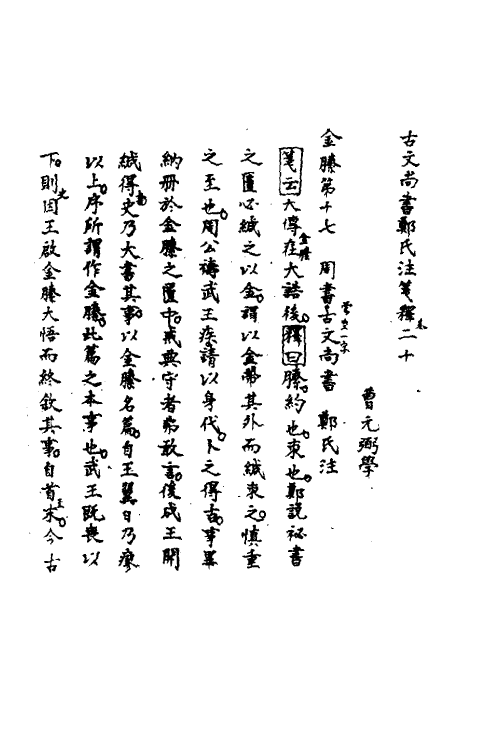 古文尚書鄭氏注箋釋卷二十
曹元弼學
金縢第十七 周書古文尚書 鄭氏注
箋云大傳金縢在大誥後釋曰縢約也束也鄭說祕書
之匱必緘之以金謂以金帶其外而緘束之慎重
之至也周公禱武王疾請以身代卜之得吉事畢
納冊於金縢之匱中戒典守者勿敢言後成王開
緘得書史乃大書其事以金縢名篇自王翼日乃瘳
以上序所謂作金縢此篇之本事也武王既喪以
下則因王啟金縢大悟而終敘其事自首至末今古